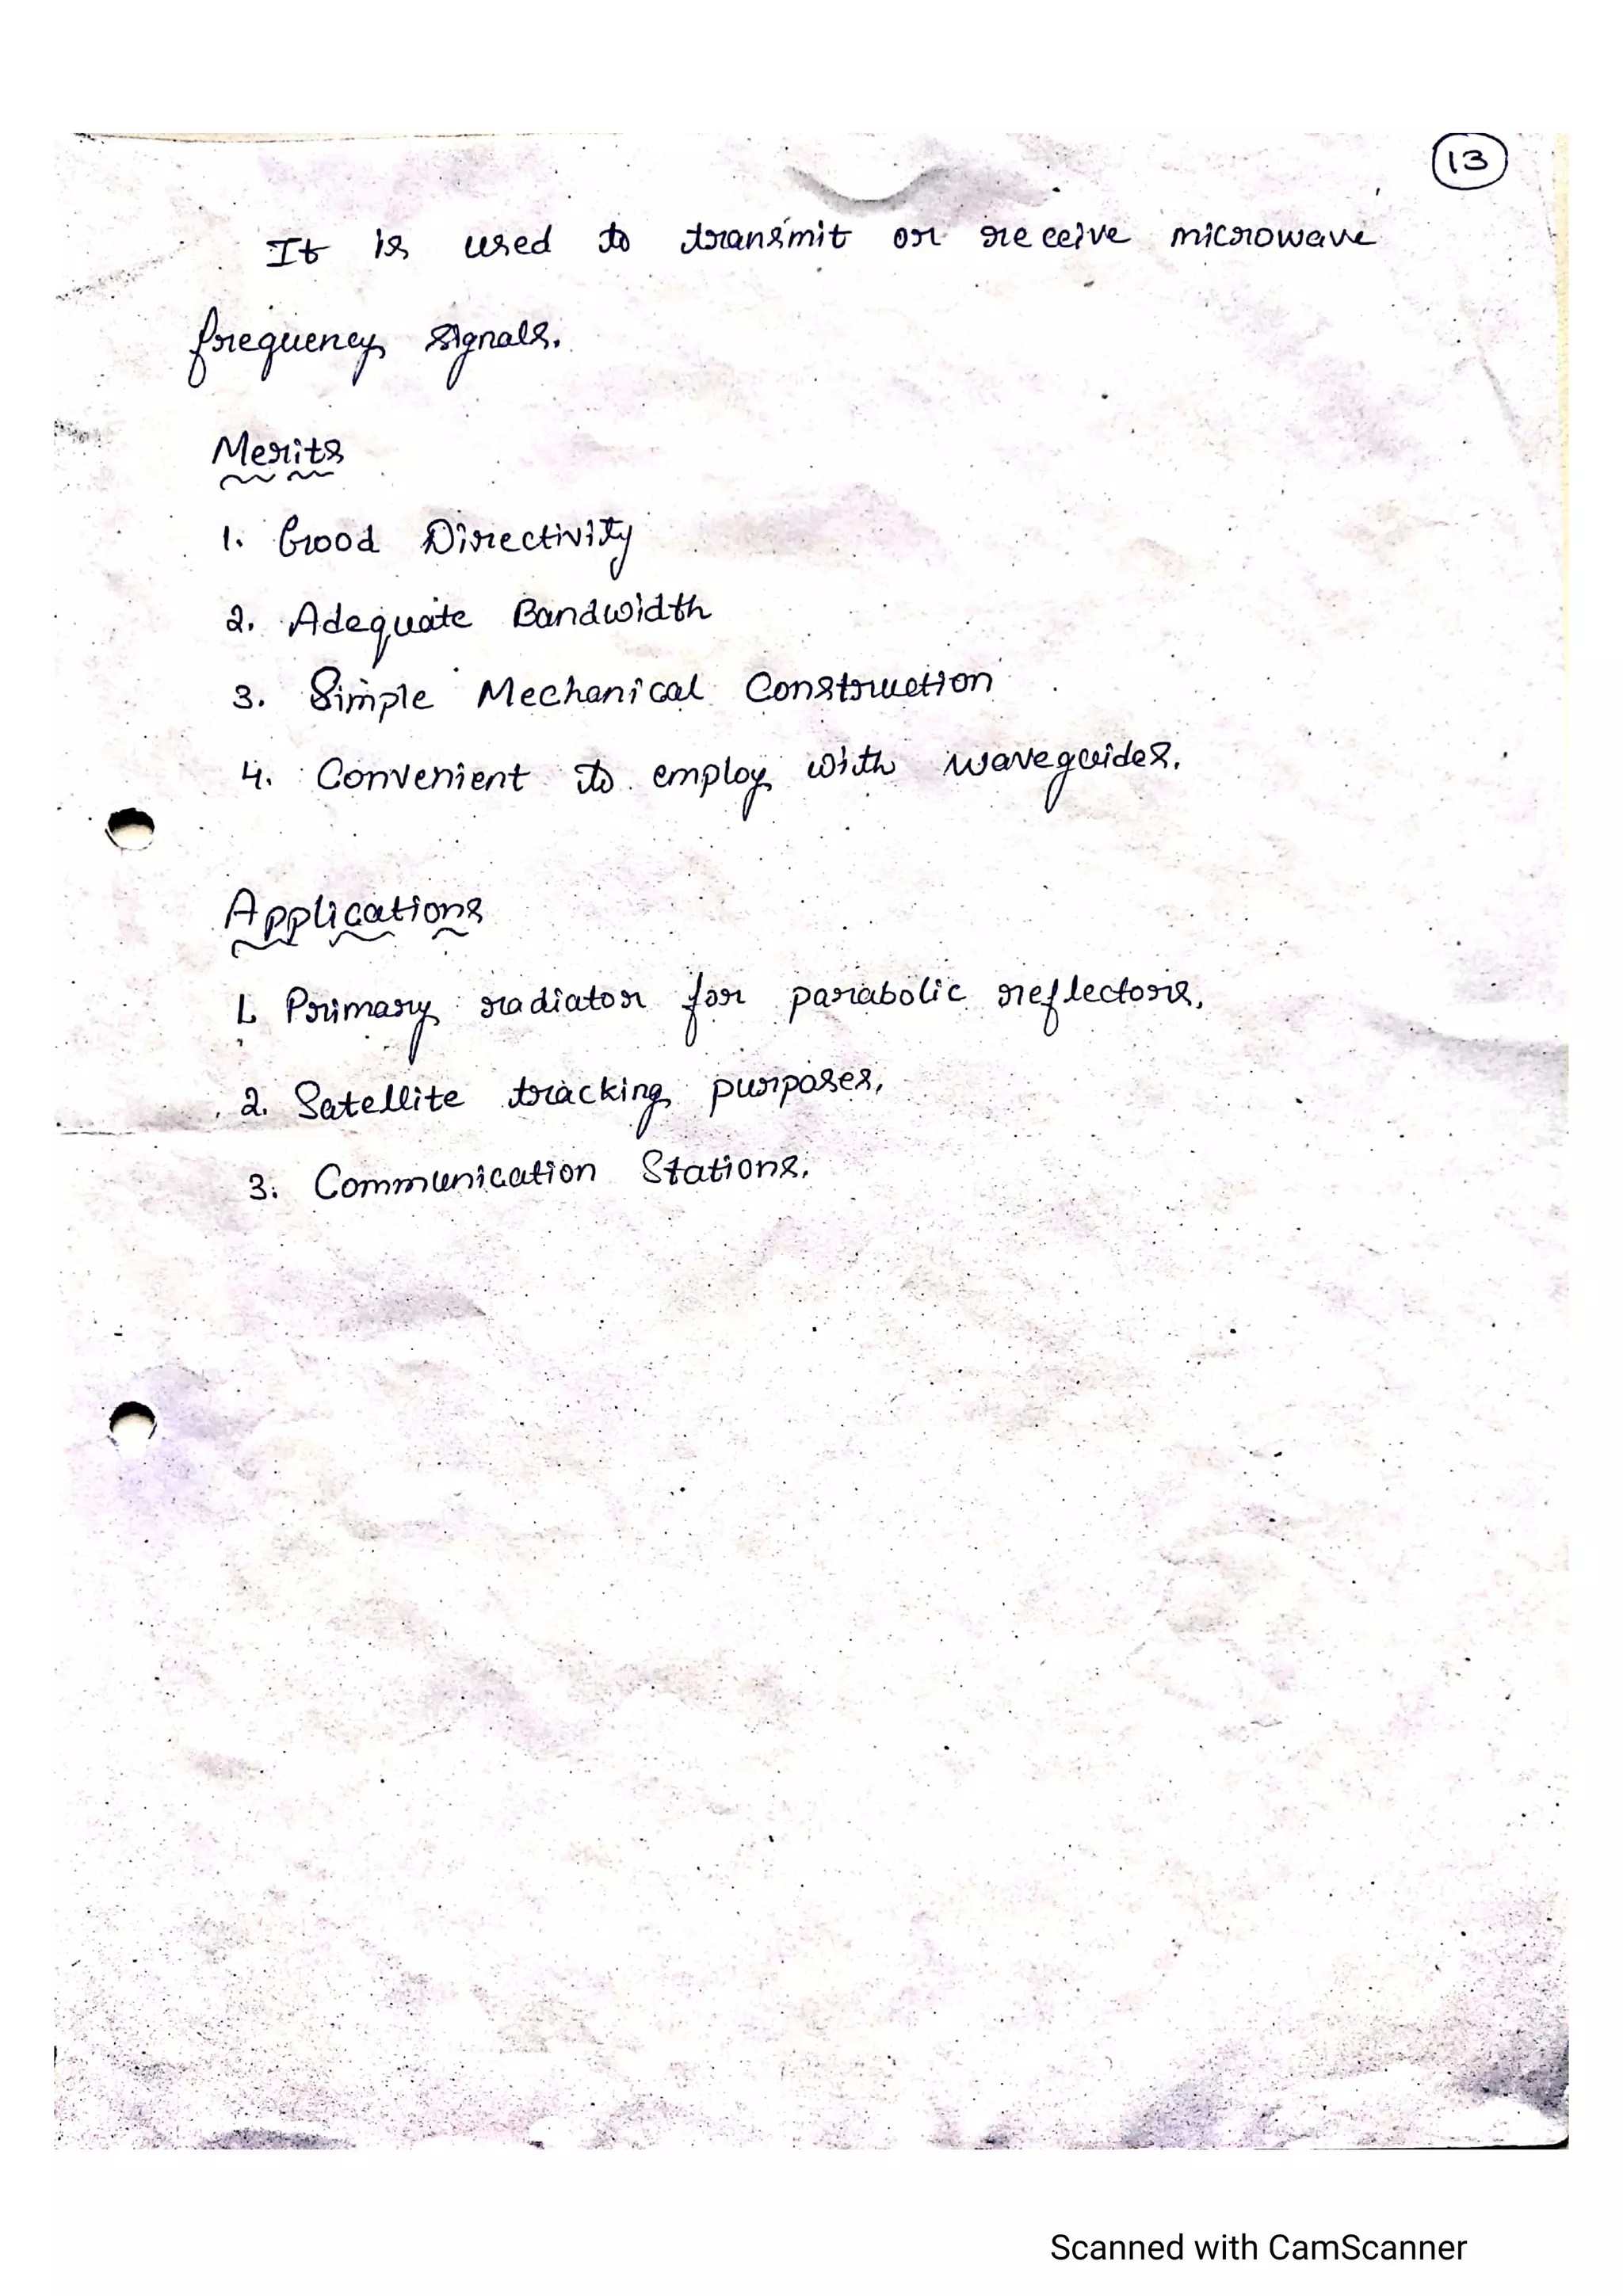 13
It is used to transmit or receive microwave
frequency signals.
Merits
1. Good Directivity
2. Adequate Bandwidth
3. Simple Mechanical Construction
4. Convenient to employ with waveguides.
Applications
1. Primary radiator for parabolic reflectors,
2. Satellite tracking purposes,
3. Communication Stations.
Scanned with CamScanner